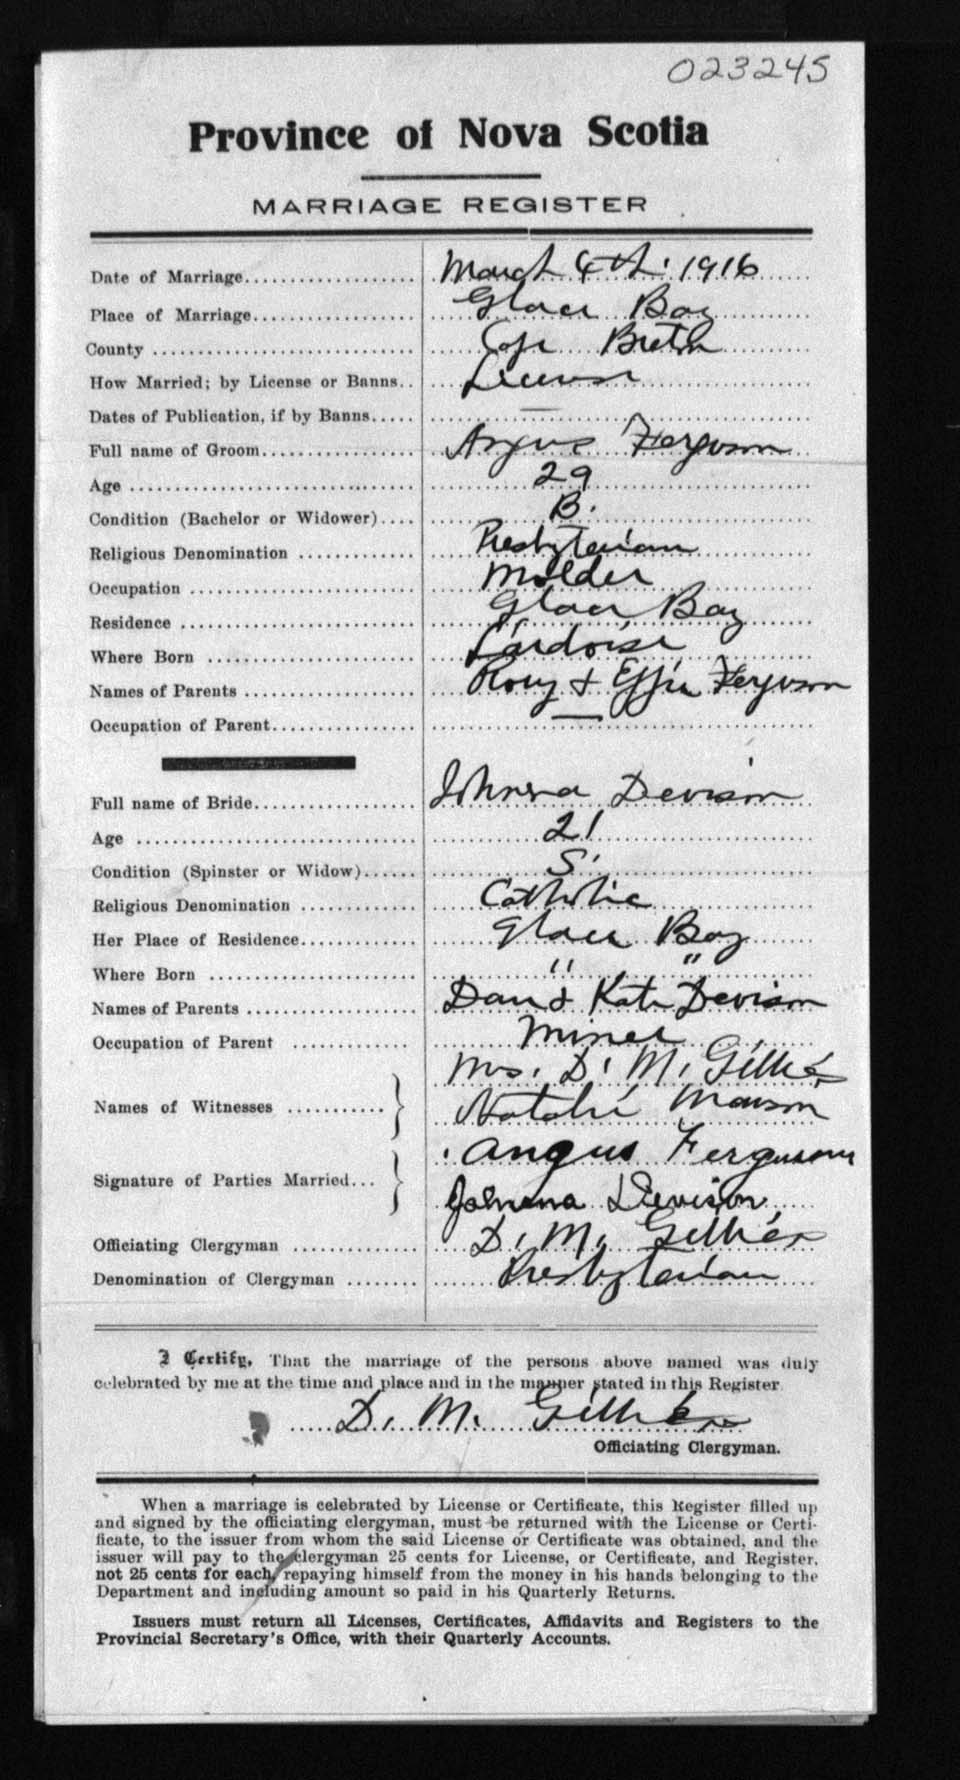 023245
Province of Nova Scotia
MARRIAGE REGISTER
Date of Marriage March 4th. 1916
Place of Marriage Glace Bay
County Cape Breton
How Married; by License or Banns License
Dates of Publication, if by Banns —
Full name of Groom Angus Ferguson
Age 29
Condition (Bachelor or Widower) B.
Religious Denomination Presbyterian
Occupation Molder
Residence Glace Bay
Where Born L'ardoise
Names of Parents Rory & Effie Ferguson
Occupation of Parent —
Full name of Bride Johnena Devison
Age 21
Condition (Spinster or Widow) S.
Religious Denomination Catholic
Her Place of Residence Glace Bay
Where Born " "
Names of Parents Dan & Kate Devison
Occupation of Parent Miner
Mrs. D. M. Gillies
Names of Witnesses
Natalie
Angus Ferguson
Signature of Parties Married
Johnena Devison
Officiating Clergyman D. M. Gillies
Denomination of Clergyman Presbyterian
I Certify, That the marriage of the persons above named was duly
celebrated by me at the time and place and in the manner stated in this Register
D. M. Gillies
Officiating Clergyman.
When a marriage is celebrated by License or Certificate, this Register filled up
and signed by the officiating clergyman, must be returned with the License or Certi-
ficate, to the issuer from whom the said License or Certificate was obtained, and the
issuer will pay to the clergyman 25 cents for License, or Certificate, and Register,
not 25 cents for each, repaying himself from the money in his hands belonging to the
Department and including amount so paid in his Quarterly Returns.
Issuers must return all Licenses, Certificates, Affidavits and Registers to the
Provincial Secretary's Office, with their Quarterly Accounts.